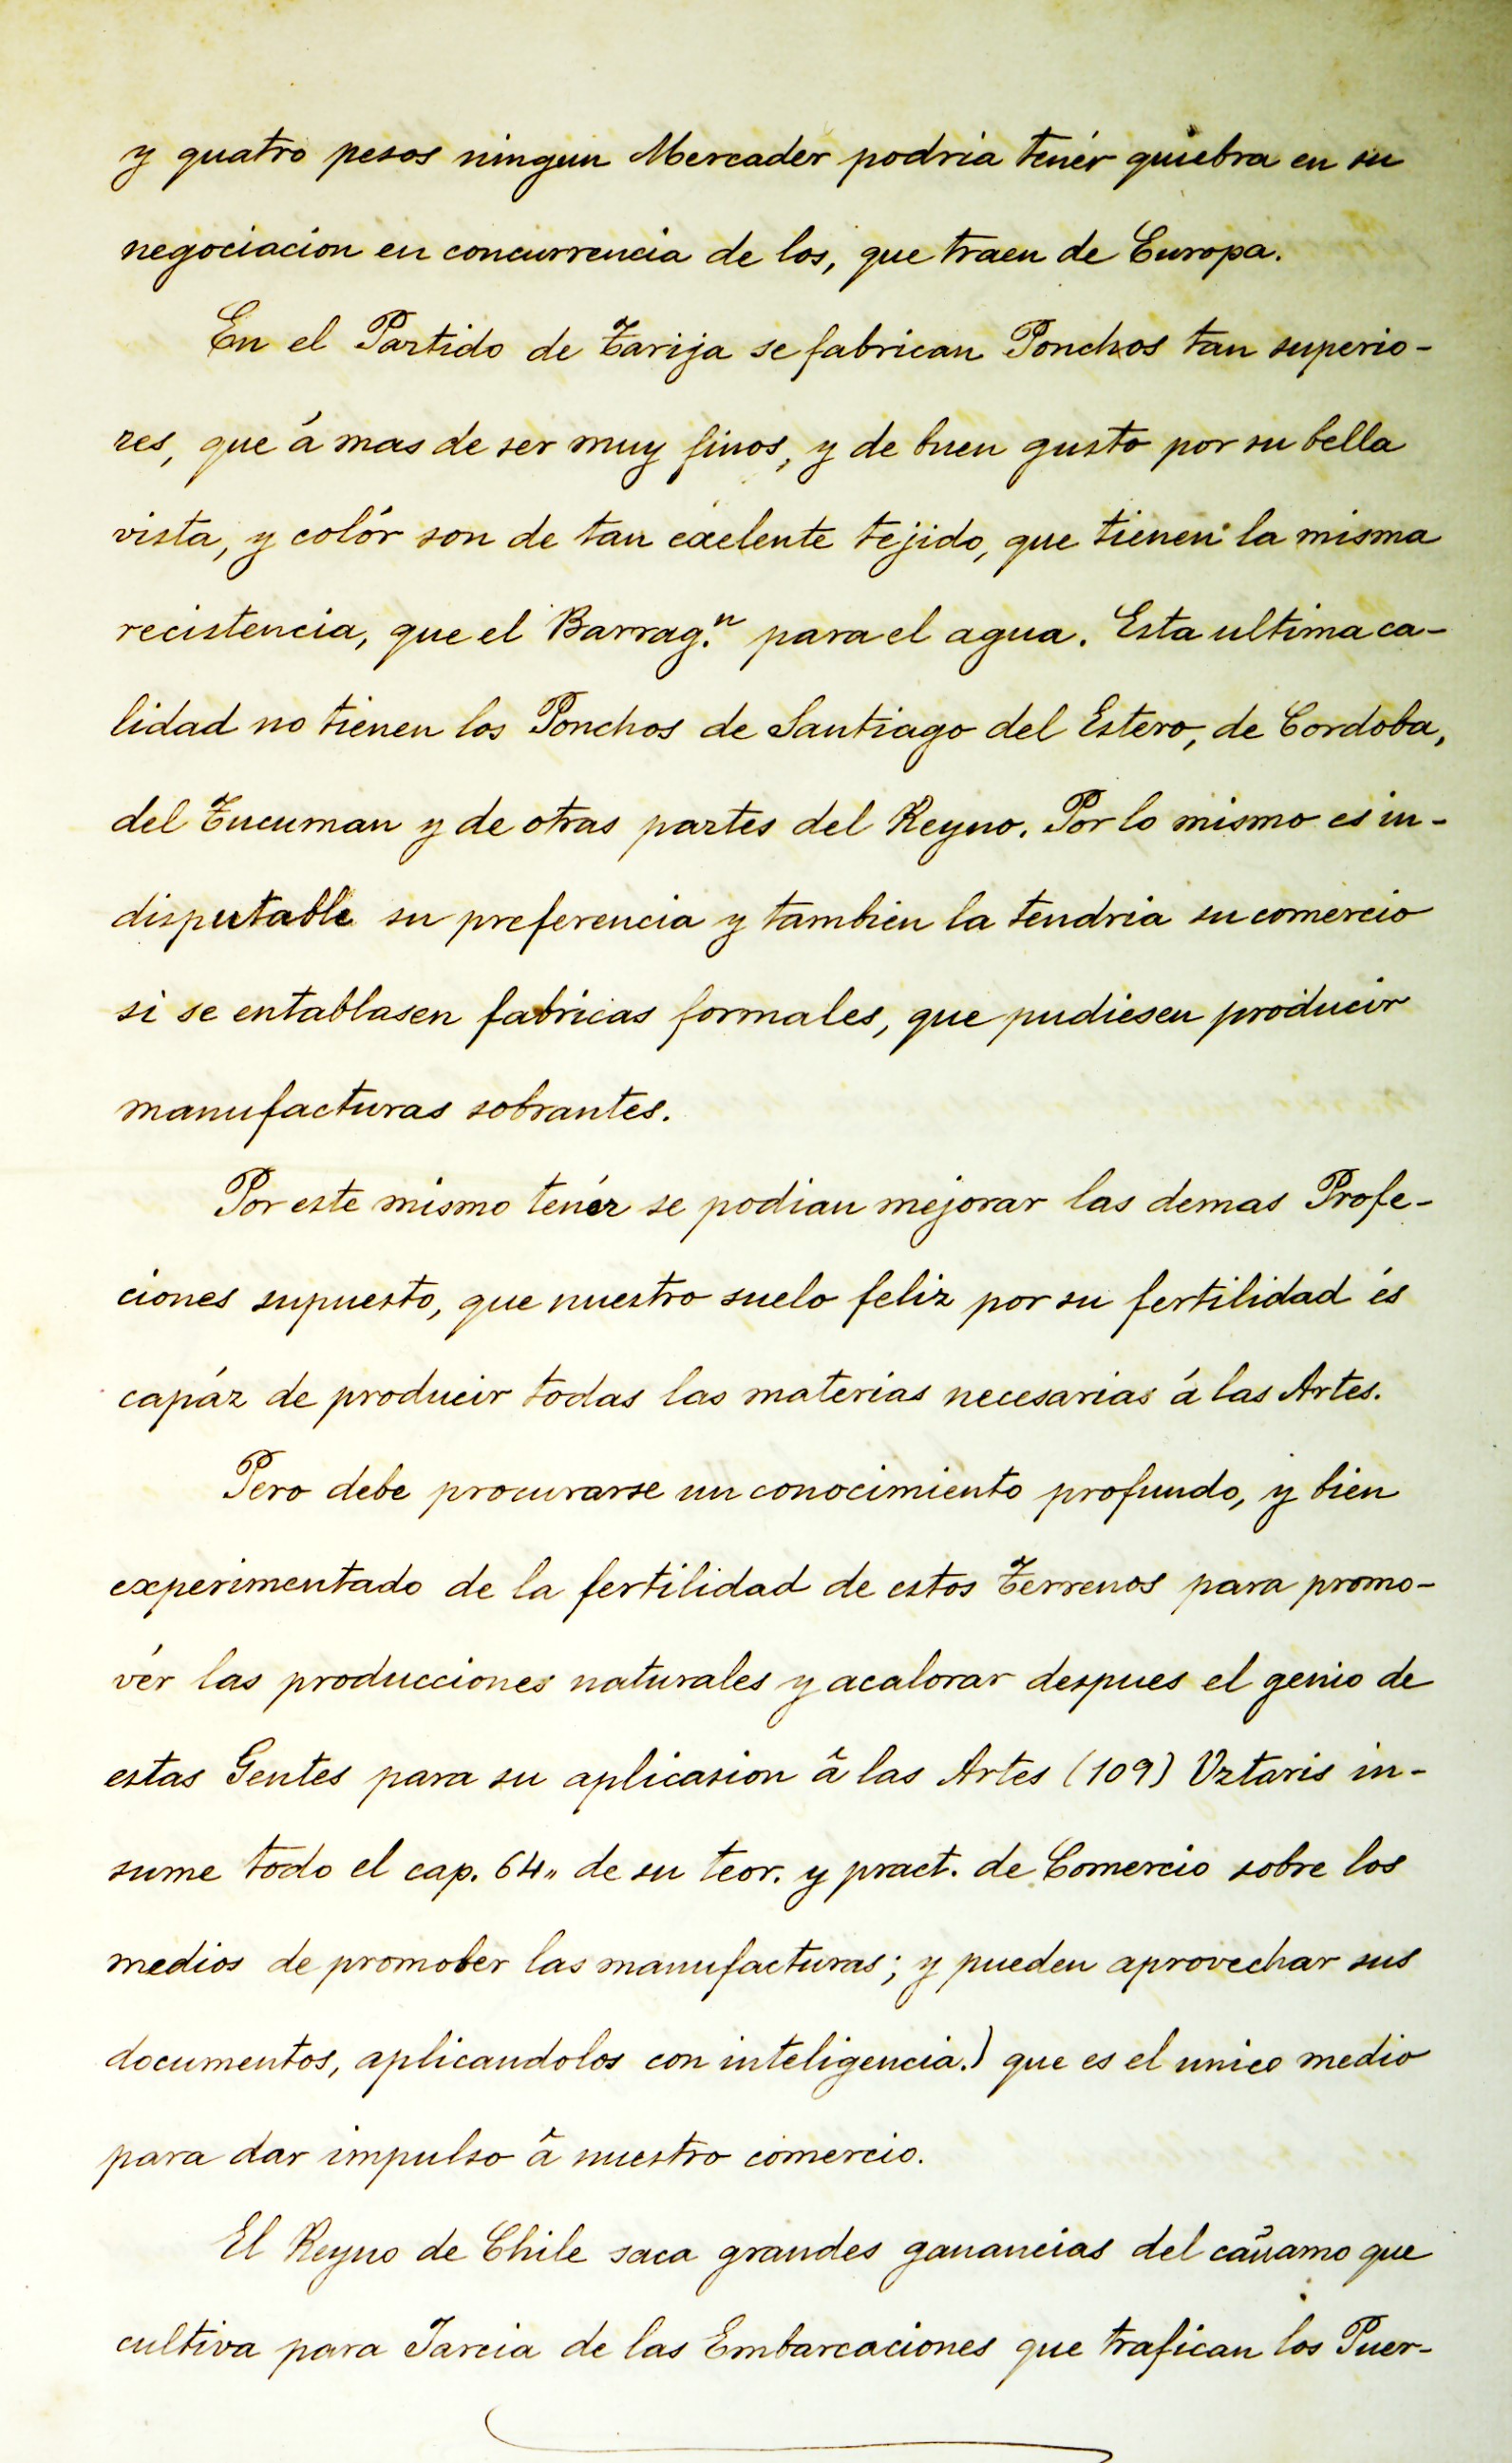 y quatro pesos ningun Mercadér podria tenér quiebra en su
negociacion en concurrencia de los, que traen de Europa.
En el Partido de Tarija se fabrican Ponchos tan superio-
res, que á mas de ser muy finos, y de buen gusto por su bella
vista, y colór son de tan exelente tejido, que tienen la misma
recistencia, que el Barrag.n para el agua. Esta ultima ca-
lidad no tienen los Ponchos de Santiago del Estero, de Cordoba,
del Tucuman y de otras partes del Reyno. Por lo mismo es in-
disputable su preferencia y tambien la tendria su comercio
si se entablasen fabricas formales, que pudiesen producir
manufacturas sobrantes.
Por este mismo tenér se podian mejorar las demas Profe-
ciones supuesto, que nuestro suelo feliz por su fertilidad és
capáz de producir todas las materias necesarias á las Artes.
Pero debe procurarse un conocimiento profundo, y bien
experimentado de la fertilidad de estos Terrenos para promo-
vér las producciones naturales y acalorar despues el genio de
estas Gentes para su aplicasion â las Artes (109) Uztaris in-
sume todo el cap. 64,, de su teor. y pract. de Comercio sobre los
medios de promober las manufacturas; y pueden aprovechar sus
documentos, aplicandolos con inteligencia.) que es el unico medio
para dar impulso â nuestro comercio.
El Reyno de Chile saca grandes ganancias del cáñamo que
cultiva para Jarcia de las Embarcaciones que trafican los Puer-